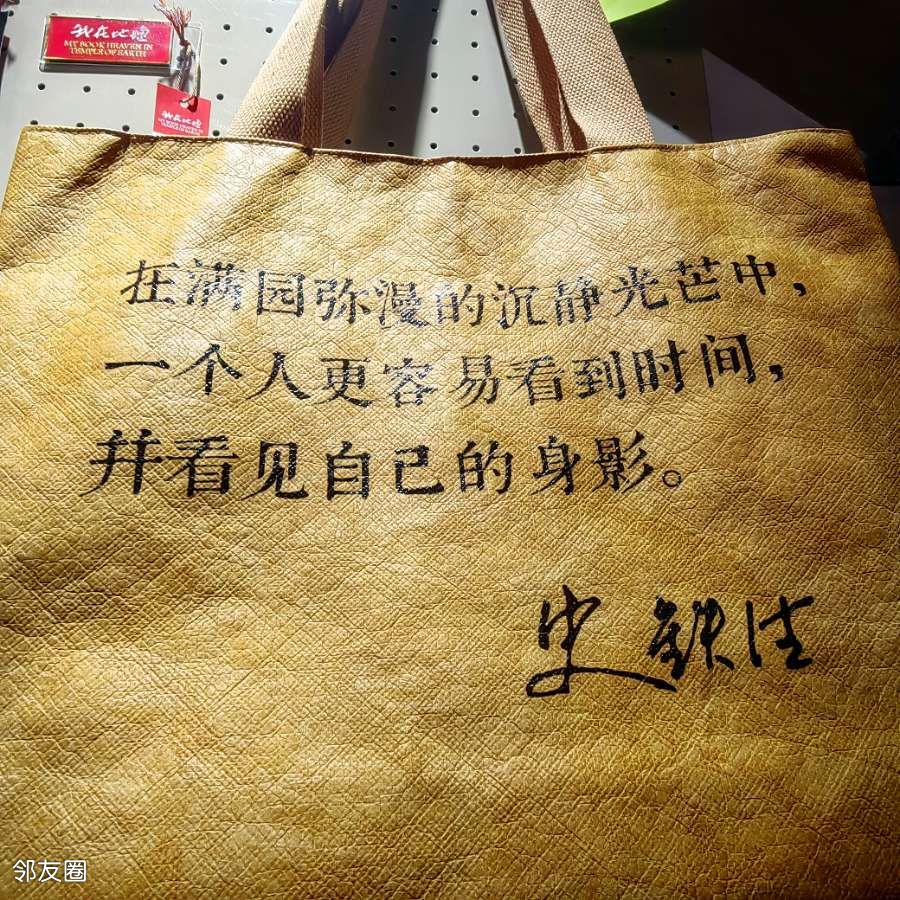 我在地坛
MY BOOK HEAVEN IN
TEMPLE OF EARTH
我在地坛
在满园弥漫的沉静光芒中，
一个人更容易看到时间，
并看见自己的身影。
史铁生
邻友圈